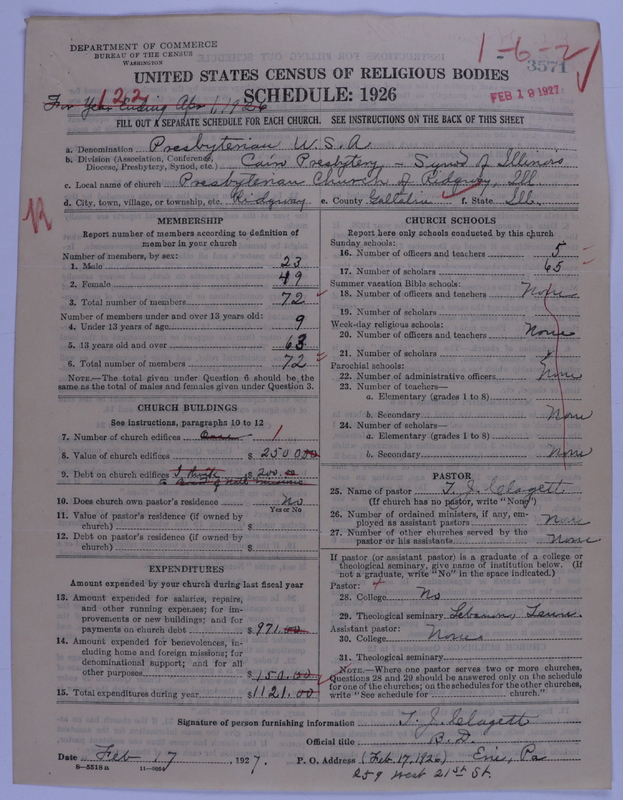 DEPARTMENT OF COMMERCE
BUREAU OF THE CENSUS
WASHINGTON
1-6-2
3571
UNITED STATES CENSUS OF RELIGIOUS BODIES
SCHEDULE: 1926
FEB 19 1927
For Year Ending Apr 1, 1926
122
FILL OUT A SEPARATE SCHEDULE FOR EACH CHURCH. SEE INSTRUCTIONS ON THE BACK OF THIS SHEET
a. Denomination Presbyterian U.S.A
b. Division (Association, Conference, Diocese, Presbytery, Synod, etc.) Cairo Presbytery - Synod of Illinois
c. Local name of church Presbyterian Church of Ridgway, Ill
d. City, town, village, or township, etc. Ridgway e. County Gallatin f. State Ill.
MEMBERSHIP
Report number of members according to definition of
member in your church
Number of members, by sex:
1. Male 23
2. Female 49
3. Total number of members 72
Number of members under and over 13 years old:
4. Under 13 years of age 9
5. 13 years old and over 63
6. Total number of members 72
NOTE.—The total given under Question 6 should be the
same as the total of males and females given under Question 3.
CHURCH BUILDINGS
See instructions, paragraphs 10 to 12
7. Number of church edifices One 1
8. Value of church edifices $ 2500
9. Debt on church edifices $ 200.00
10. Does church own pastor's residence No
Yes or No
11. Value of pastor's residence (if owned by
church) $
12. Debt on pastor's residence (if owned by
church) $
EXPENDITURES
Amount expended by your church during last fiscal year
13. Amount expended for salaries, repairs,
and other running expenses; for im-
provements or new buildings; and for
payments on church debt $ 971.00
14. Amount expended for benevolences, in-
cluding home and foreign missions; for
denominational support; and for all
other purposes $ 150.00
15. Total expenditures during year $ 1121.00
CHURCH SCHOOLS
Report here only schools conducted by this church
Sunday schools:
16. Number of officers and teachers 5
17. Number of scholars 65
Summer vacation Bible schools:
18. Number of officers and teachers None
19. Number of scholars
Week-day religious schools:
20. Number of officers and teachers None
21. Number of scholars
Parochial schools:
22. Number of administrative officers None
23. Number of teachers—
a. Elementary (grades 1 to 8)
b. Secondary None
24. Number of scholars—
a. Elementary (grades 1 to 8)
b. Secondary None
PASTOR
25. Name of pastor T. J. Clagett
(If church has no pastor, write "None")
26. Number of ordained ministers, if any, em-
ployed as assistant pastors None
27. Number of other churches served by the
pastor or his assistants None
If pastor (or assistant pastor) is a graduate of a college or
theological seminary, give name of institution below. (If
not a graduate, write "No" in the space indicated.)
Pastor:
28. College No
29. Theological seminary Lebanon, Tenn.
Assistant pastor:
30. College None
31. Theological seminary
NOTE.—Where one pastor serves two or more churches,
Questions 28 and 29 should be answered only on the schedule
for one of the churches; on the schedules for the other churches,
write "See schedule for church."
Signature of person furnishing information T. J. Clagett
Official title B. D.
Date Feb 17, 1927. P. O. Address (Feb. 17, 1926) Erie, Pa
8—5518 a 259 West 21st St.